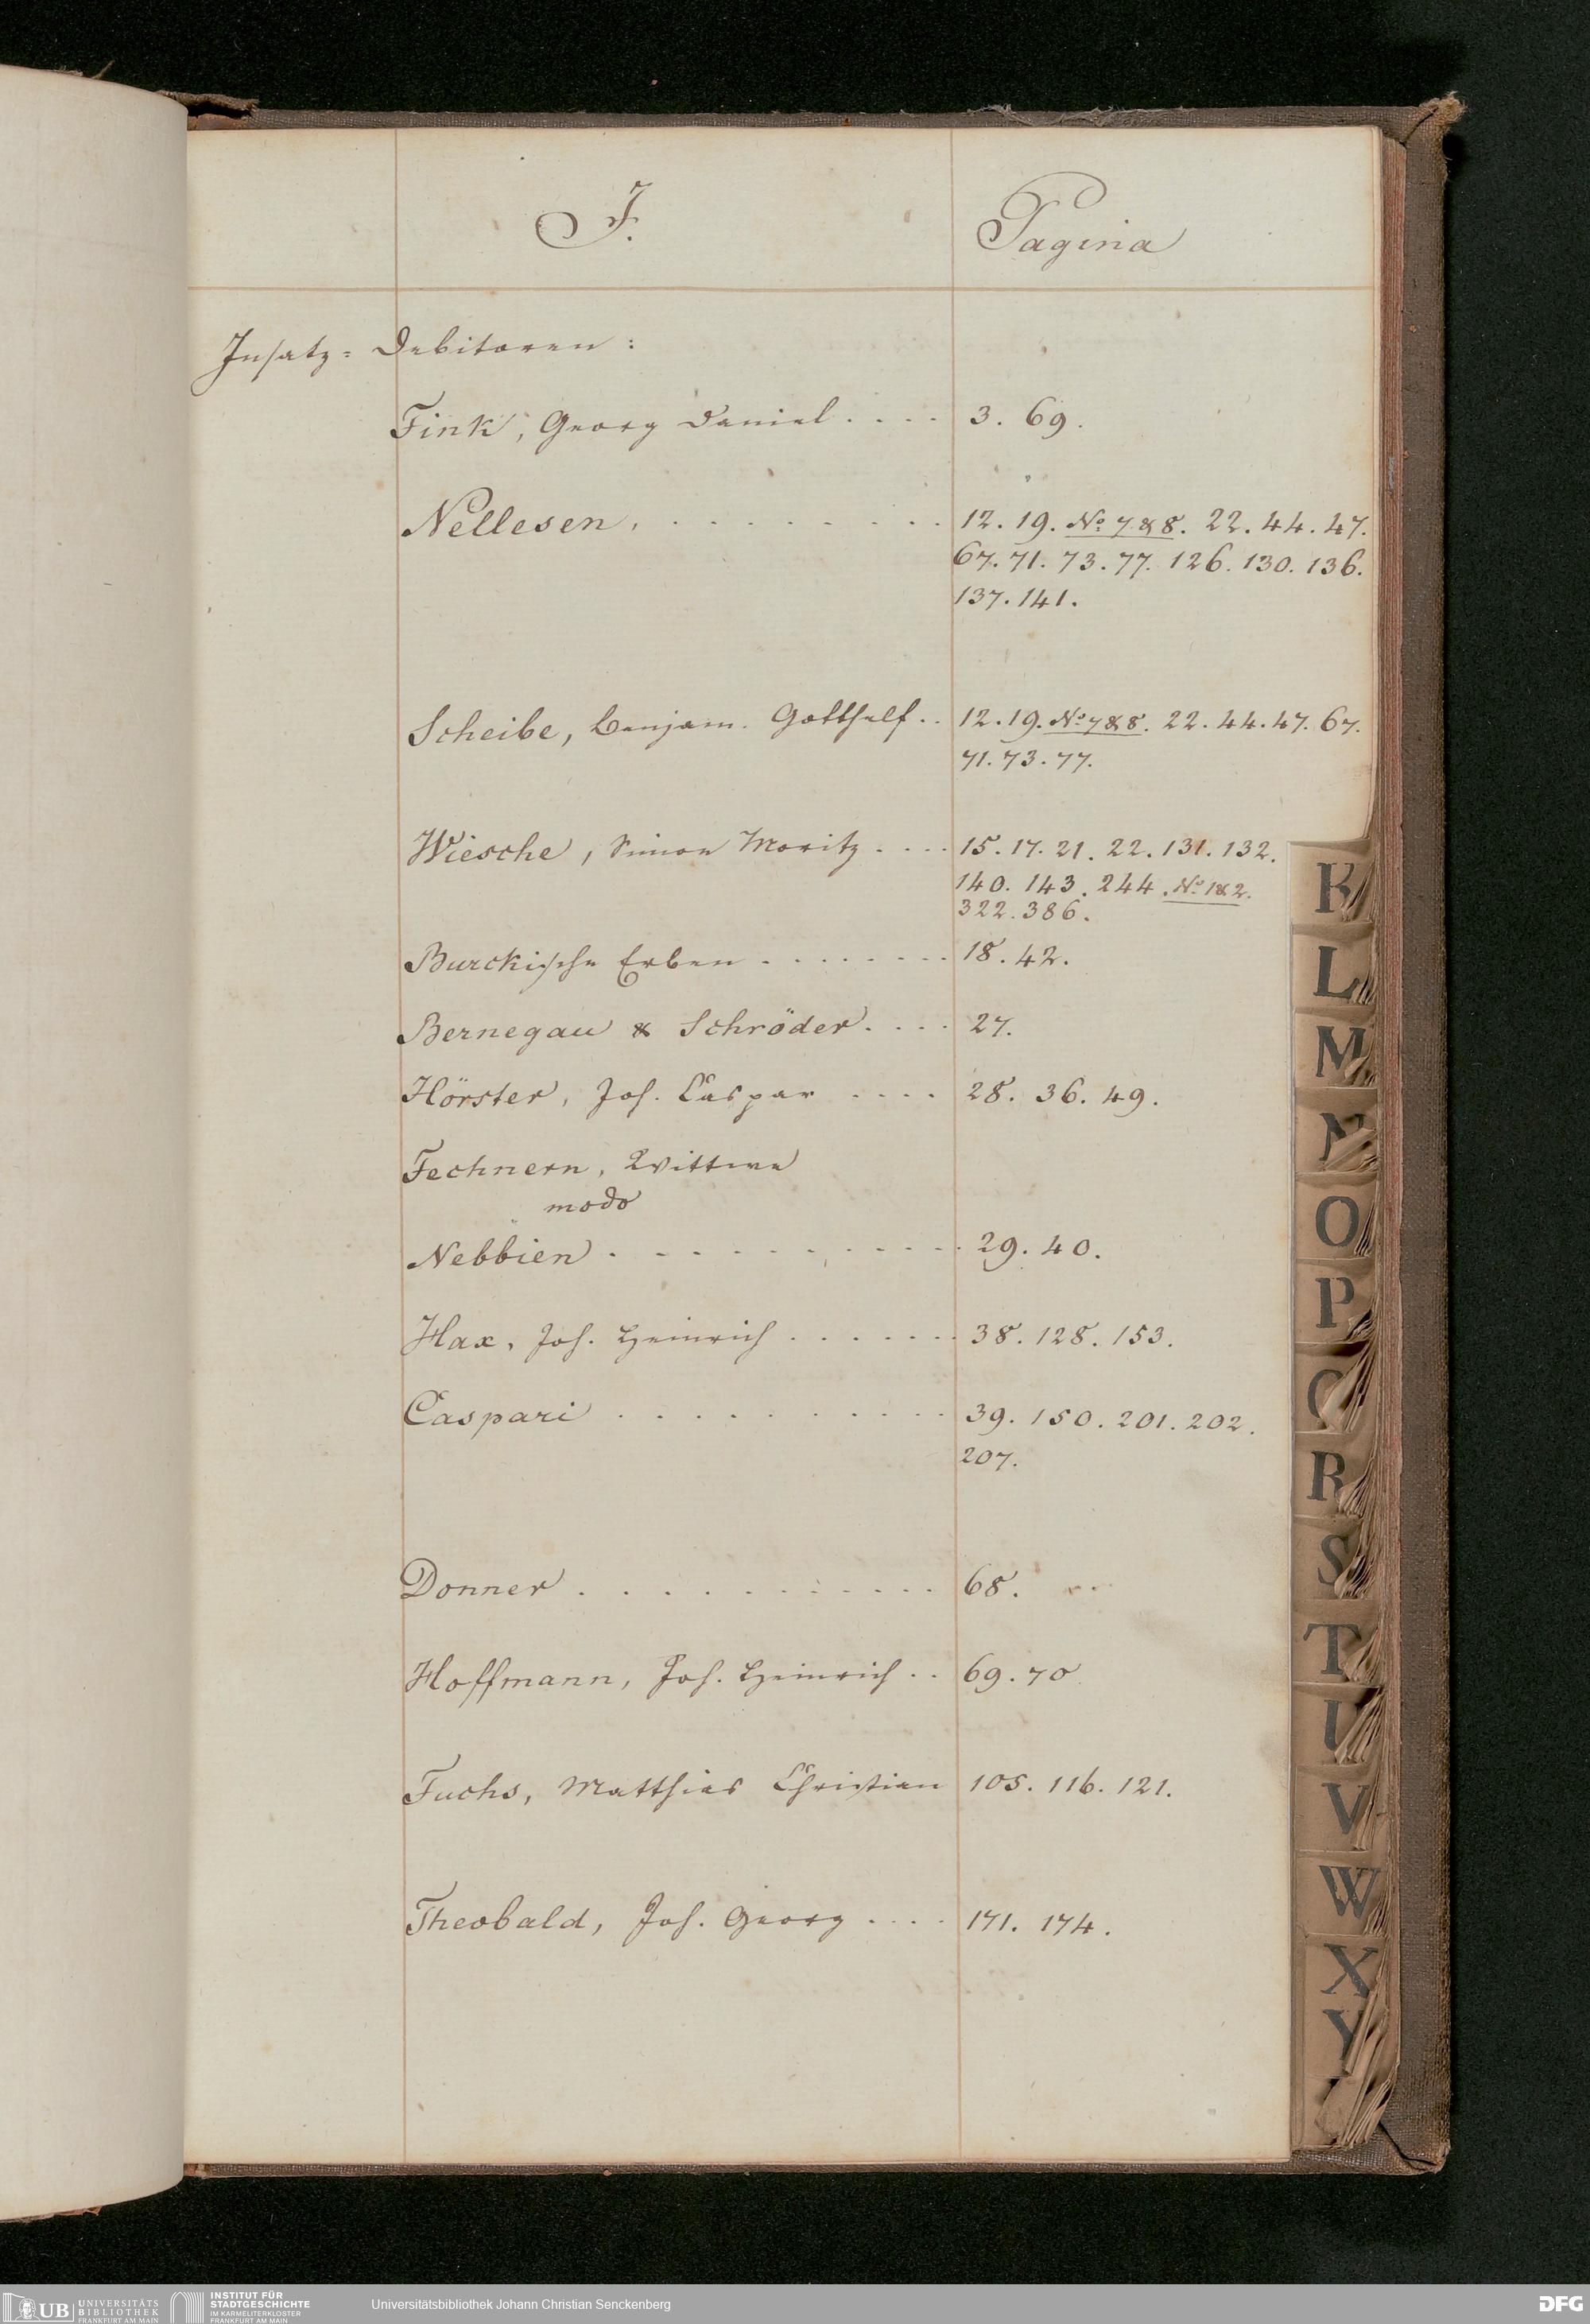 J. Pagina
Insatz= Debitoren:
Fink, Georg Daniel .... 3. 69.
Nellesen, ......... 12. 19. No. 7 & 8. 22. 44. 47.
67. 71. 73. 77. 126. 130. 136.
137. 141.
Scheibe, Benjam. Gotthelf .. 12. 19. No. 7 & 8. 22. 44. 47. 67.
71. 73. 77.
Wiesche, Simon Moritz .... 15. 17. 21. 22. 131. 132.
140. 143. 244. No. 1 & 2.
322. 386.
Burckische Erben ........ 18. 42.
Bernegau & Schröder .... 27.
Hörster, Joh. Caspar .... 28. 36. 49.
Fechnern, Wittwe
modo
Nebbien ........... 29. 40.
Hax, Joh. Heinrich ....... 38. 128. 153.
Caspari ............ 39. 150. 201. 202.
207.
Donner ............. 68.
Hoffmann, Joh. Heinrich .. 69. 70
Fuchs, Matthias Christian 105. 116. 121.
Theobald, Joh. Georg .... 171. 174.
K
L
M
N
O
P
Q
R
S
T
U
V
W
X
Y
UB UNIVERSITÄTS
BIBLIOTHEK
FRANKFURT AM MAIN
INSTITUT FÜR
STADTGESCHICHTE
IM KARMELITERKLOSTER
FRANKFURT AM MAIN
Universitätsbibliothek Johann Christian Senckenberg
DFG